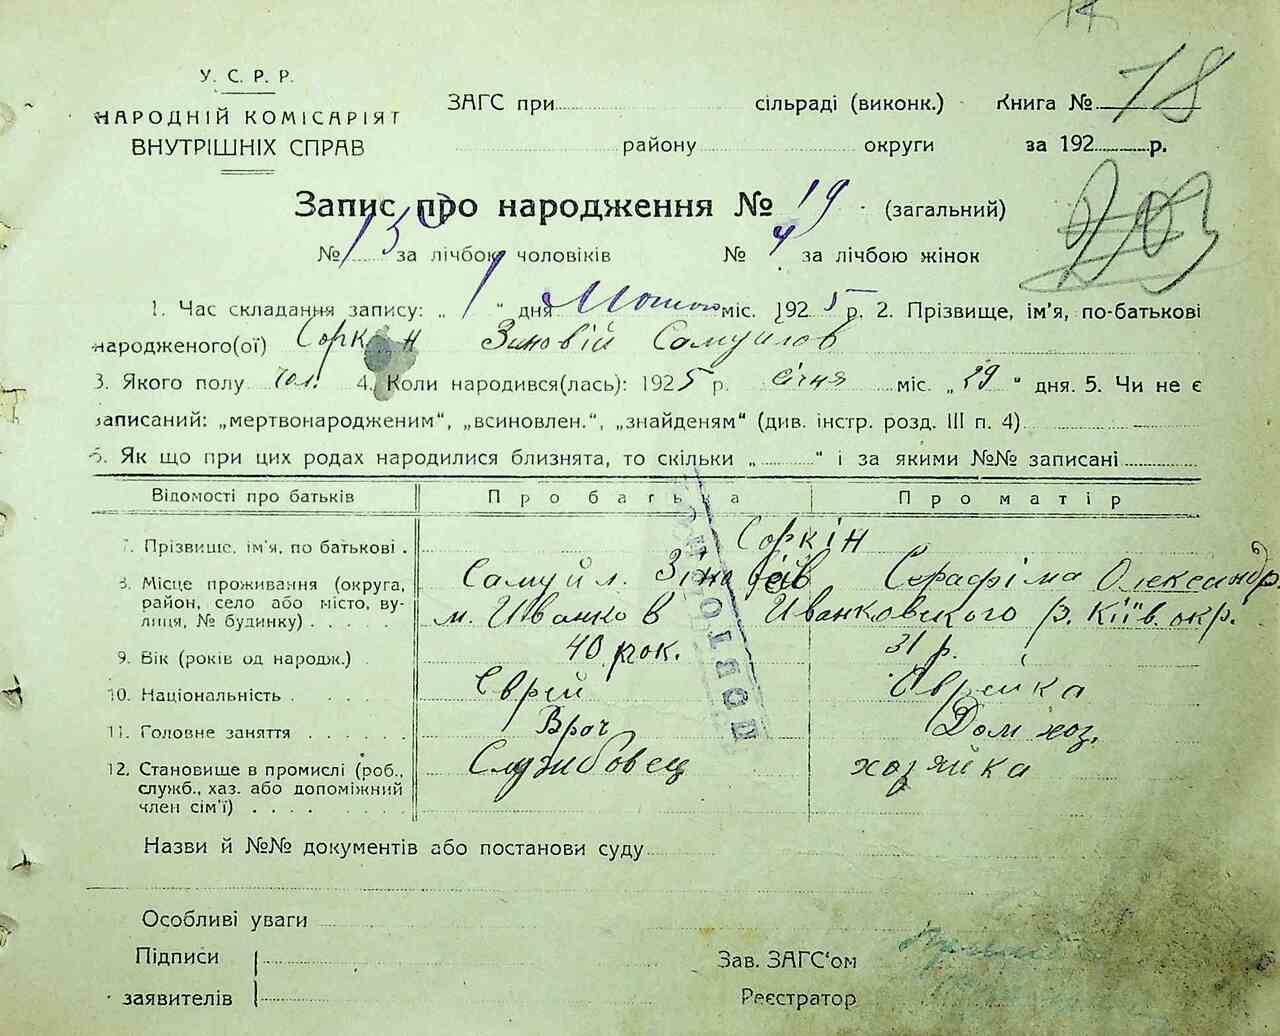 У. С. Р. Р.
НАРОДНІЙ КОМІСАРІЯТ
ВНУТРІШНІХ СПРАВ
ЗАГС при сільраді (виконк.) Книга № 78
району округи за 192 р.
Запис про народження № 19 (загальний)
203
№ 15 за лічбою чоловіків № 4 за лічбою жінок
1. Час складання запису: „ 1 “ дня Лютого міс. 1925 р. 2. Прізвище, ім'я, по-батькові
народженого(ої) Соркін Зиновій Самуилов
3. Якого полу чол. 4. Коли народився(лась): 1925 р. січня міс. „29“ дня. 5. Чи не є
записаний: „мертвонародженим“, „всиновлен.“, „знайденям“ (див. інстр. розд. III п. 4)
6. Як що при цих родах народилися близнята, то скільки „ “ і за якими №№ записані
Відомості про батьків Про батька Про матір
7. Прізвище, ім'я, по батькові . Соркін
Самуйл. Зіновіїв Серафіма Олександр.
8. Місце проживання (округа, район, село або місто, вулиця, № будинку) . . . . м. Иванков Иванковского р. Київ. окр.
9. Вік (років од народж.) 40 рок. 31 р.
10. Національність . Єврей Єврейка
11. Головне заняття . . . . . . Врач Дом. хоз.
12. Становище в промислі (роб., служб., хаз. або допоміжний член сім'ї) . . . . Службовец хозяйка
Назви й №№ документів або постанови суду
Особливі уваги
Підписи
заявителів
Зав. ЗАГС'ом
Реєстратор